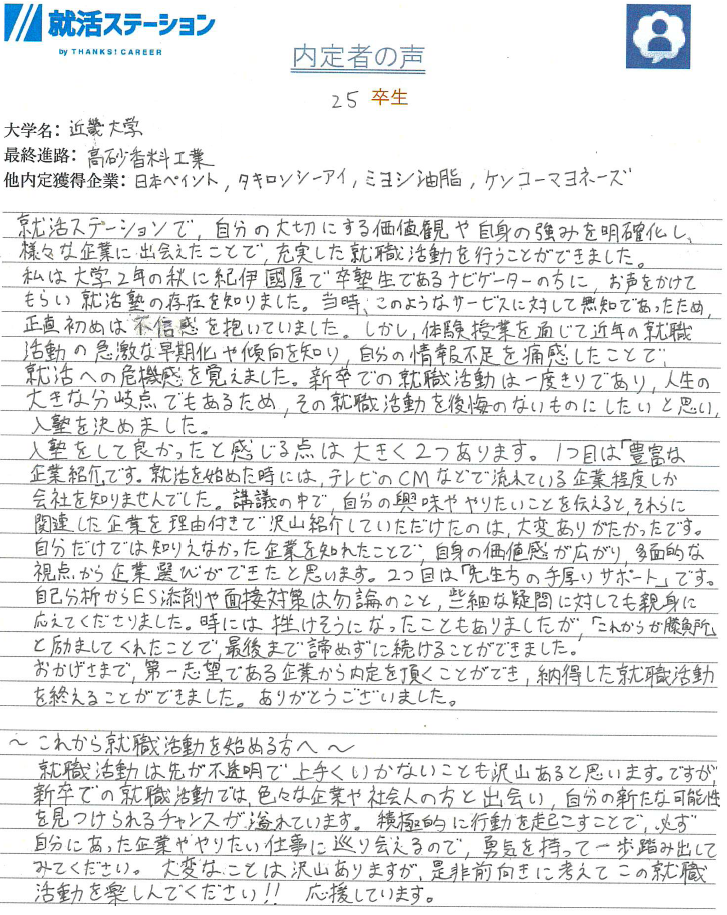 就活ステーション
by THANKS! CAREER
内定者の声
25 卒生
大学名: 近畿大学
最終進路: 高砂香料工業
他内定獲得企業: 日本ペイント, タキロンシーアイ, ミヨシ油脂, ケンコーマヨネーズ
就活ステーションで, 自分の大切にする価値観や自身の強みを明確化し,
様々な企業に出会えたことで, 充実した就職活動を行うことができました。
私は大学2年の秋に紀伊國屋で卒塾生であるナビゲーターの方に, お声をかけて
もらい就活塾の存在を知りました。当時, このようなサービスに対して無知であったため,
正直初めは不信感を抱いていました。しかし, 体験授業を通じて近年の就職
活動の急激な早期化や傾向を知り, 自分の情報不足を痛感したことで,
就活への危機感を覚えました。新卒での就職活動は一度きりであり, 人生の
大きな分岐点でもあるため, その就職活動を後悔のないものにしたいと思い,
入塾を決めました。
入塾をして良かったと感じる点は大きく2つあります。1つ目は「豊富な
企業紹介」です。就活を始めた時には, テレビのCMなどで流れている企業程度しか
会社を知りませんでした。講議の中で, 自分の興味ややりたいことを伝えると, それらに
関連した企業を理由付きで沢山紹介していただけたのは, 大変ありがたかったです。
自分だけでは知りえなかった企業を知れたことで, 自身の価値感が広がり, 多面的な
視点から企業選びができたと思います。2つ目は「先生方の手厚いサポート」です。
自己分析からES添削や面接対策は勿論のこと, 些細な疑問に対しても親身に
応えてくださりました。時には挫けそうになったこともありましたが,「これからが勝負所」
と励ましてくれたことで, 最後まで諦めずに続けることができました。
おかげさまで, 第一志望である企業から内定を頂くことができ, 納得した就職活動
を終えることができました。ありがとうございました。
〜これから就職活動を始める方へ〜
就職活動は先が不透明で上手くいかないことも沢山あると思います。ですが,
新卒での就職活動では, 色々な企業や社会人の方と出会い, 自分の新たな可能性
を見つけられるチャンスが溢れています。積極的に行動を起こすことで, 必ず
自分にあった企業ややりたい仕事に巡り会えるので, 勇気を持って一歩踏み出して
みてください。大変なことは沢山ありますが, 是非前向きに考えてこの就職
活動を楽しんでください!! 応援しています。